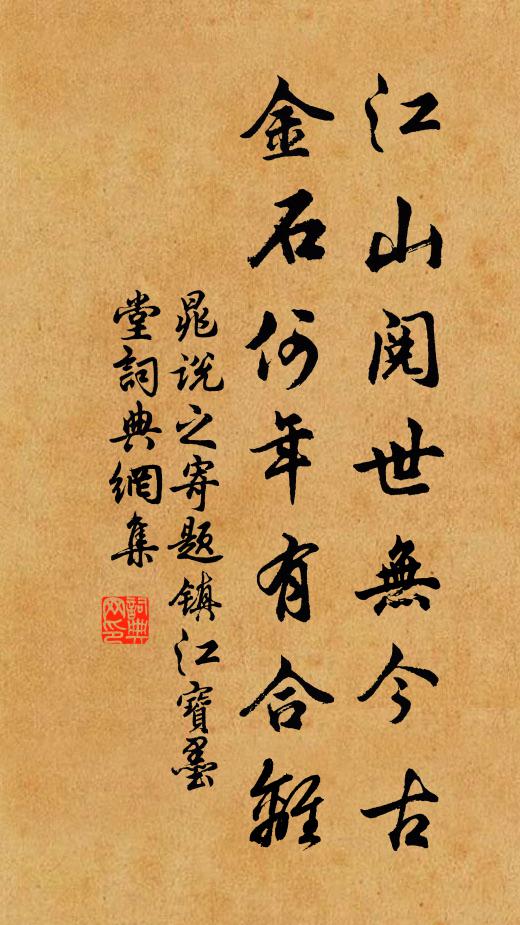 江山閱世無今古
金石何年有合離
晁説之寄題镇江寶墨
堂詞典網集
詞典
网印